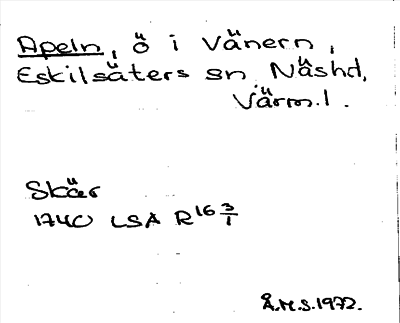 Apeln, ö i Vänern,
Eskilsäters sn Näshd,
Värm.l.
Skär
1740 LSA R16 3/1
Å.M.S.1972.